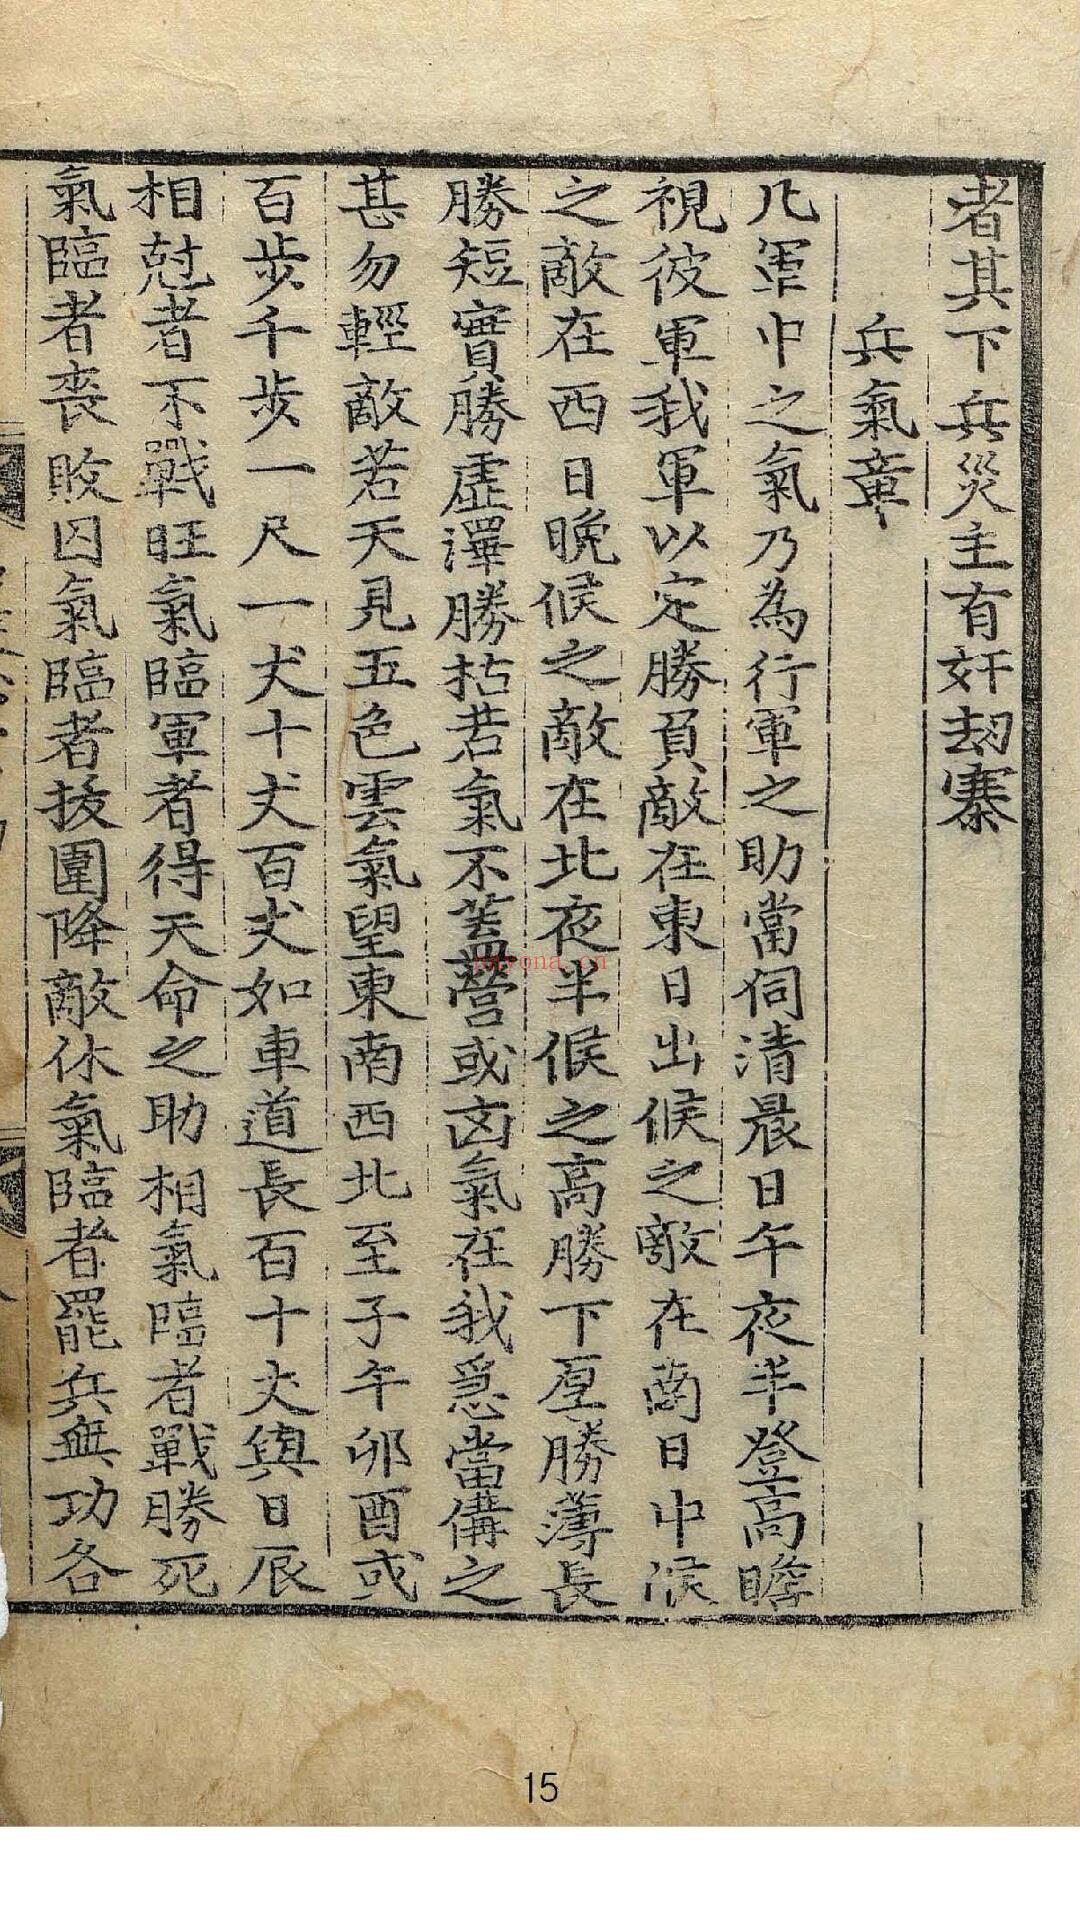 者其下兵災主有奸刼寨
兵氣章
凢軍中之氣乃為行軍之助當伺清晨日午夜半登高瞻
視彼軍我軍以定勝負敵在東日出候之敵在南日中候
之敵在西日晚候之敵在北夜半候之高勝下厚勝薄長
勝短實勝虛澤勝枯若氣不蓋營或凶氣在我急當備之
甚勿輕敵若天見五色雲氣望東南西北至子午卯酉或
百步千步一尺一丈十丈百丈如車道長百十丈與日辰
相尅者不戰旺氣臨軍者得天命之助相氣臨者戰勝死
氣臨者喪敗囚氣臨者拔圍降敵休氣臨者罷兵無功各
15